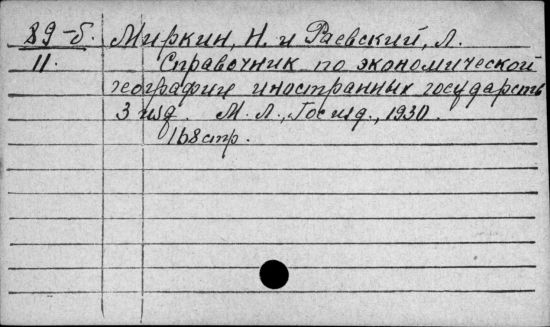 89-б. Миркин, Н. и Раевский, Л.
11. Справочник по экономической
географии иностранных государств
3 изд. М. Л., Госизд., 1930.
168 стр.